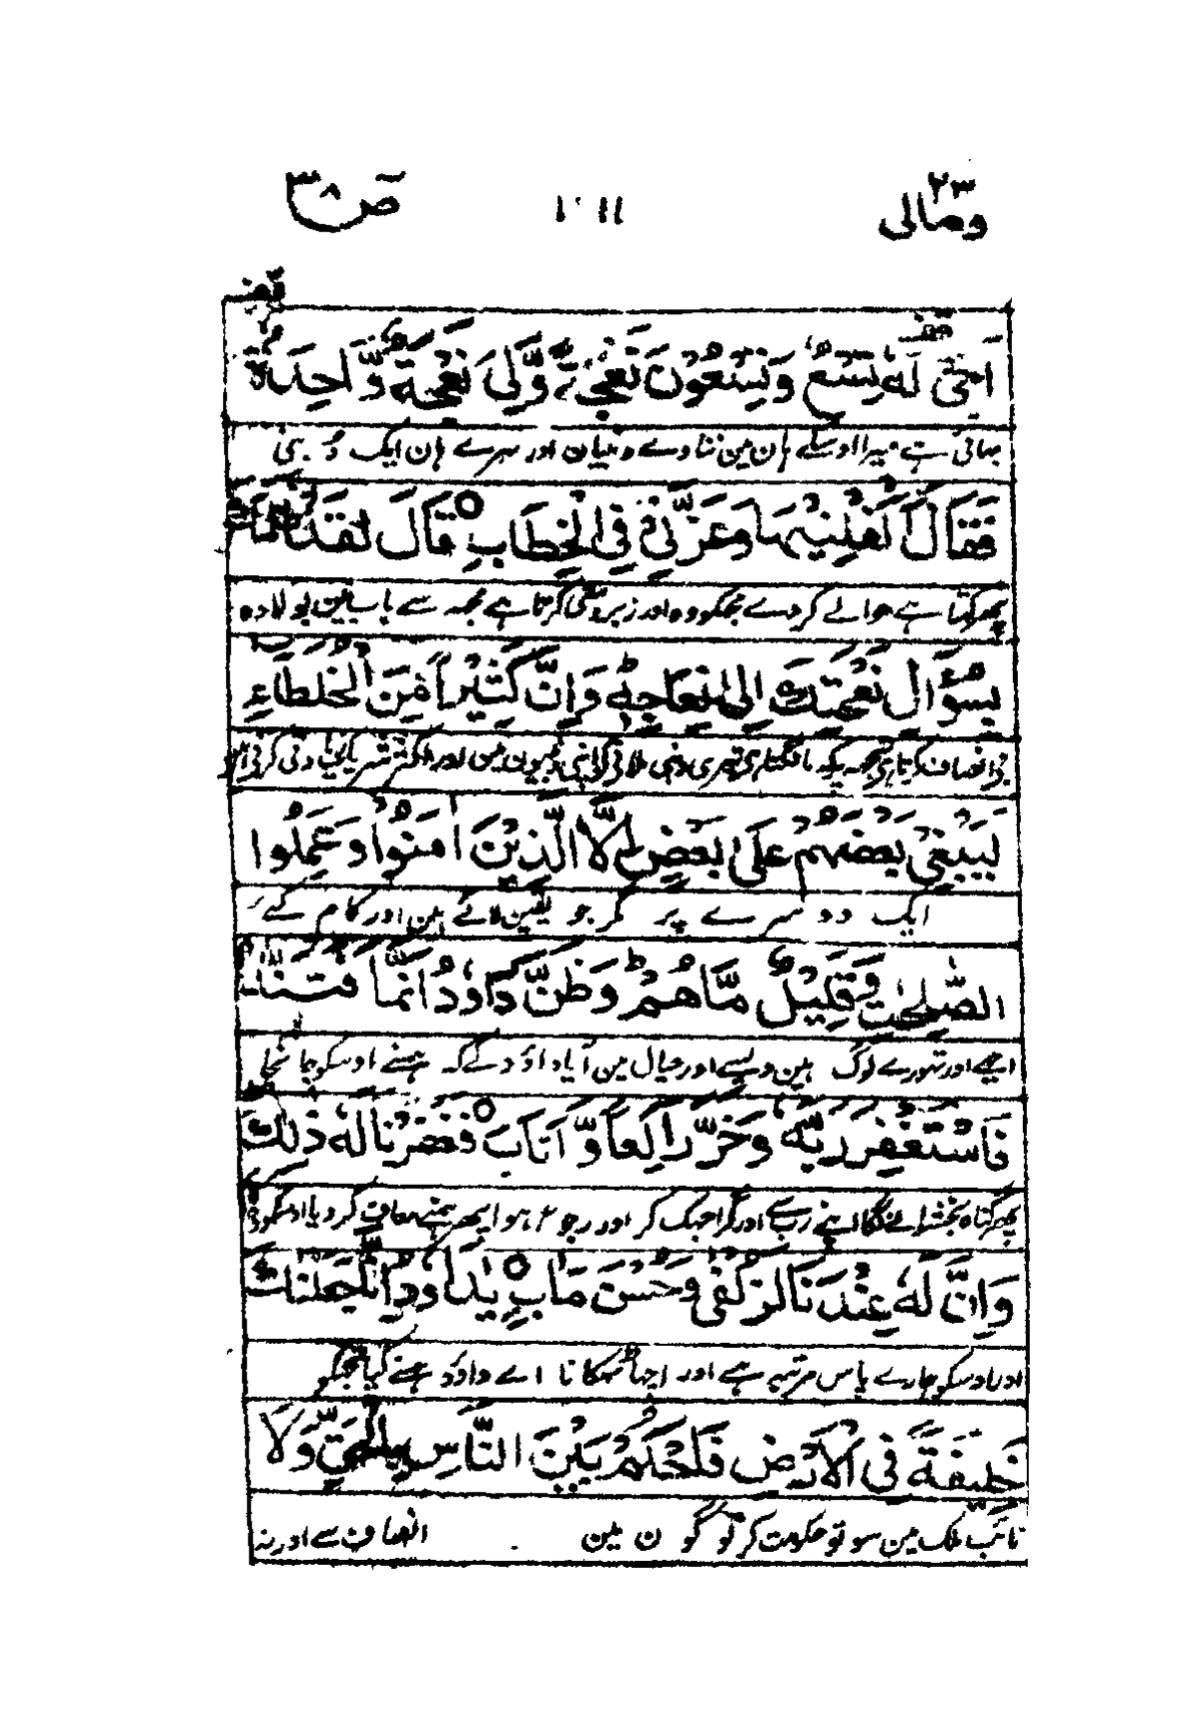 ومالی ۲۳
۱۰۱۱
صٓ ۳۸
اَخِیْ لَهٗ تِسْعٌ وَّتِسْعُوْنَ نَعْجَةً وَّلِیَ نَعْجَةٌ وَّاحِدَةٌ
بھائی ہے میرا اوسکے ہان مین ننانوے دنبیان اور میرے ہان ایک دُنبی
فَقَالَ اَكْفِلْنِیْهَا وَعَزَّنِیْ فِی الْخِطَابِ ○ قَالَ لَقَدْ ظَلَمَكَ
پھر کہتا ہے حوالے کردے مجکو وہ اور زبردستی کرتا ہے مجھ سے بات مین بولا وہ
بِسُؤَالِ نَعْجَتِكَ اِلٰی نِعَاجِهٖ ؕ وَاِنَّ كَثِیْرًا مِّنَ الْخُلَطَآءِ
بے انصاف کرتا ہے تجھ پر کہ مانگتا ہے تیری دنبی ملانے کو اپنی دنبیون مین اور اکثر شریک زیادتی کرتے ہین
لَیَبْغِیْ بَعْضُهُمْ عَلٰی بَعْضٍ اِلَّا الَّذِیْنَ اٰمَنُوْا وَعَمِلُوا
ایک دوسرے پر مگر جو یقین لائے ہین اور کام کئے
الصّٰلِحٰتِ وَقَلِیْلٌ مَّا هُمْ ؕ وَظَنَّ دَاوٗدُ اَنَّمَا فَتَنّٰهُ
اچھے اور تہورے لوگ ہین ویسے اور خیال مین آیا داؤد کے کہ ہمنے اوسکو جانچا
فَاسْتَغْفَرَ رَبَّهٗ وَخَرَّ رَاكِعًا وَّاَنَابَ ○ فَغَفَرْنَا لَهٗ ذٰلِكَ
پھر گناہ بخشوانے لگا اپنے رب سے اور گرا جہک کر اور رجوع ہوا پھر ہمنے معاف کردیا اوسکو وہ
وَاِنَّ لَهٗ عِنْدَنَا لَزُلْفٰی وَحُسْنَ مَاٰبٍ ○ یٰدَاوٗدُ اِنَّا جَعَلْنٰكَ
اور اوسکو ہمارے پاس مرتبہ ہے اور اچھا ٹھکانا اے داؤد ہمنے کیا تجکو
خَلِیْفَةً فِی الْاَرْضِ فَاحْكُمْ بَیْنَ النَّاسِ بِالْحَقِّ وَلَا
نائب ملک مین سو تو حکومت کر لوگون مین انصاف سے اور نہ